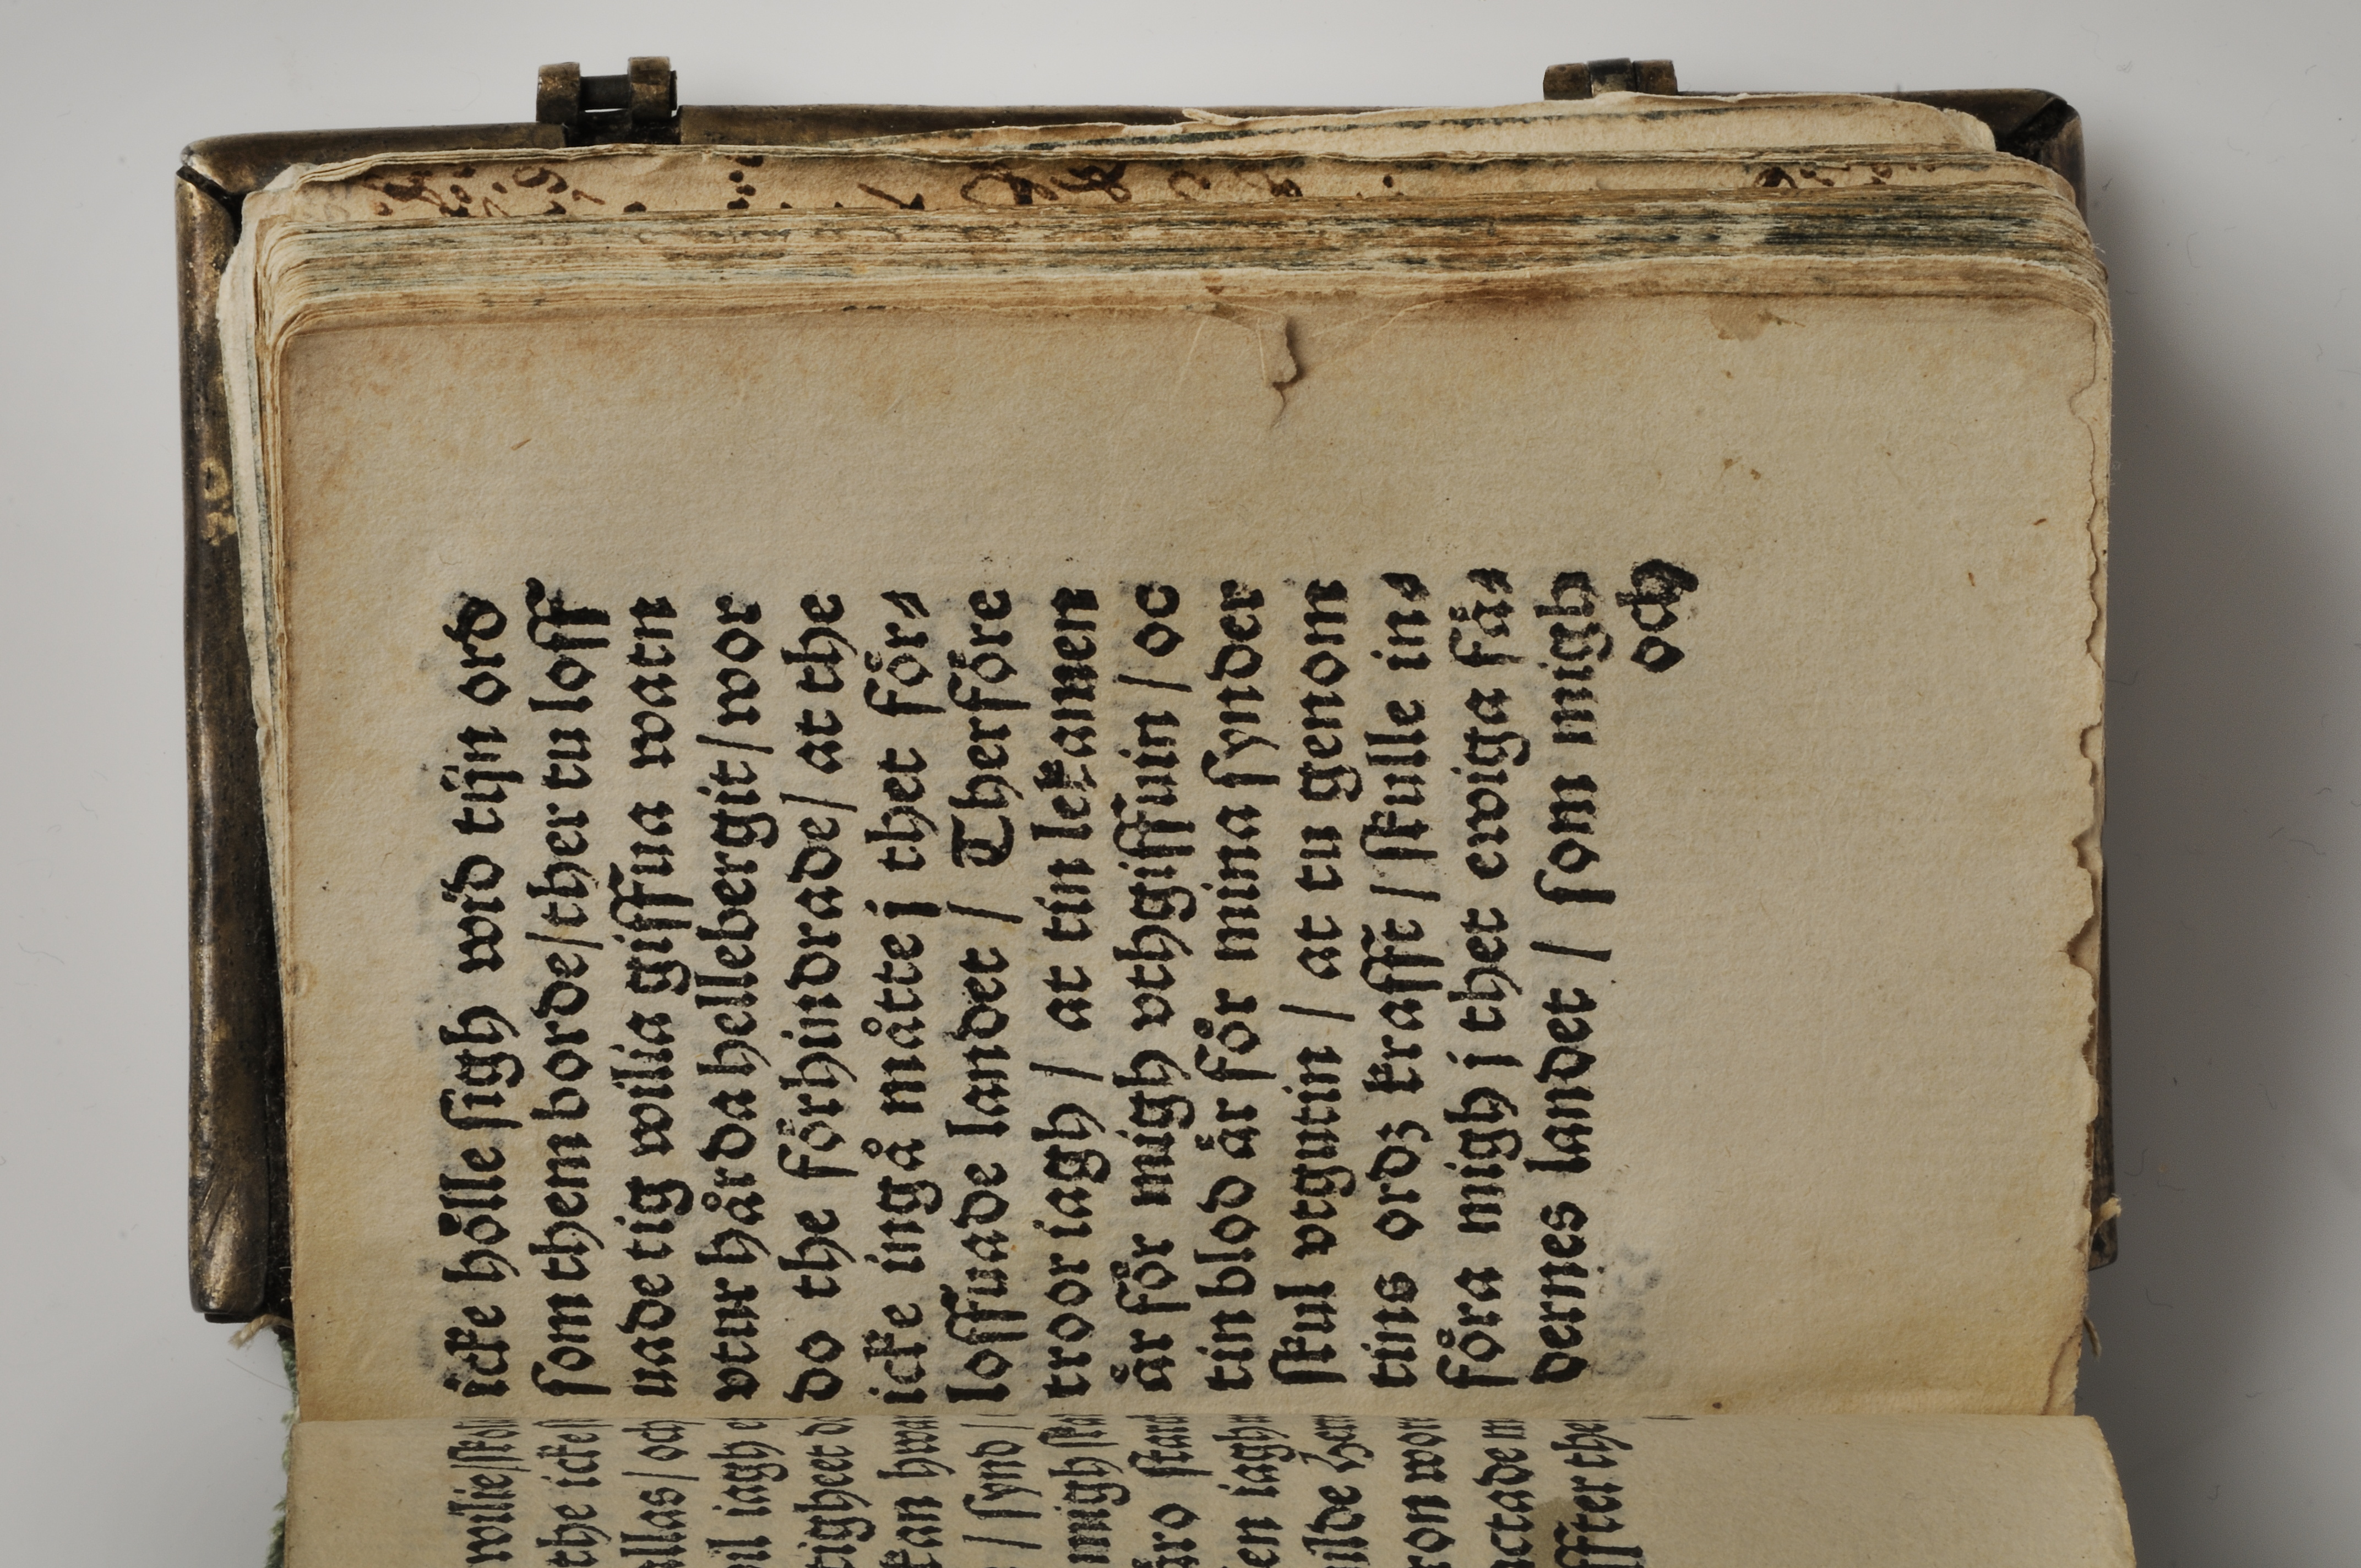 wilie/ſkol
the icke
allas/och
iagh
kan
/ ſynd /
migh
äro
iagh
wor
the
icke hölle ſigh wid tijn ord
ſom them borde/ther tu loff
uade tig wilia giffua watn
vtur hårda hellebergit/wor
do the förhindrade/ at the
icke ingå måtte j thet för⸗
loffuade landet / Therföre
troor iagh / at tin lekamen
är för migh vthgiffuin / oc
tin blod är för mina ſynder
ſkul vtgutin / at tu genom
tins ordz krafft / ſkulle in⸗
föra migh j thet ewiga fä⸗
dernes landet / ſom migh
och